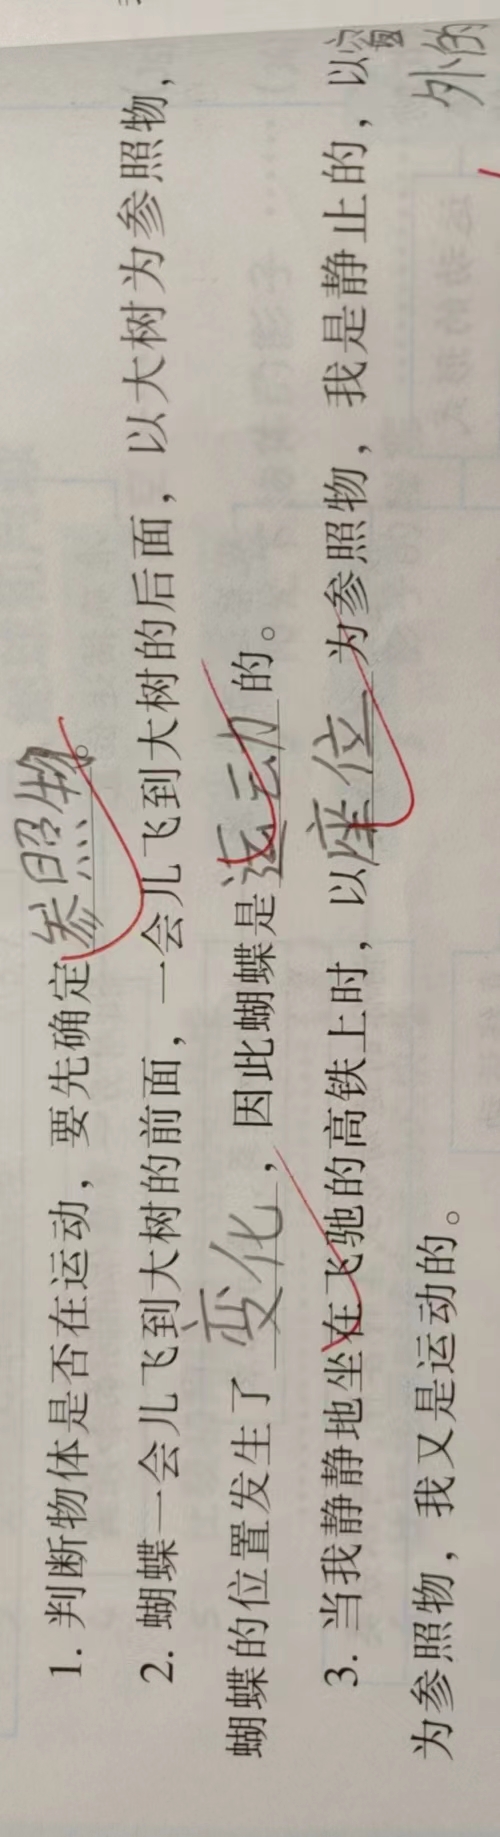 1. 判断物体是否在运动，要先确定参照物。
2. 蝴蝶一会儿飞到大树的前面，一会儿飞到大树的后面，以大树为参照物，
蝴蝶的位置发生了变化，因此蝴蝶是运动的。
3. 当我静静地坐在飞驰的高铁上时，以座位为参照物，我是静止的，以窗
外的
为参照物，我又是运动的。